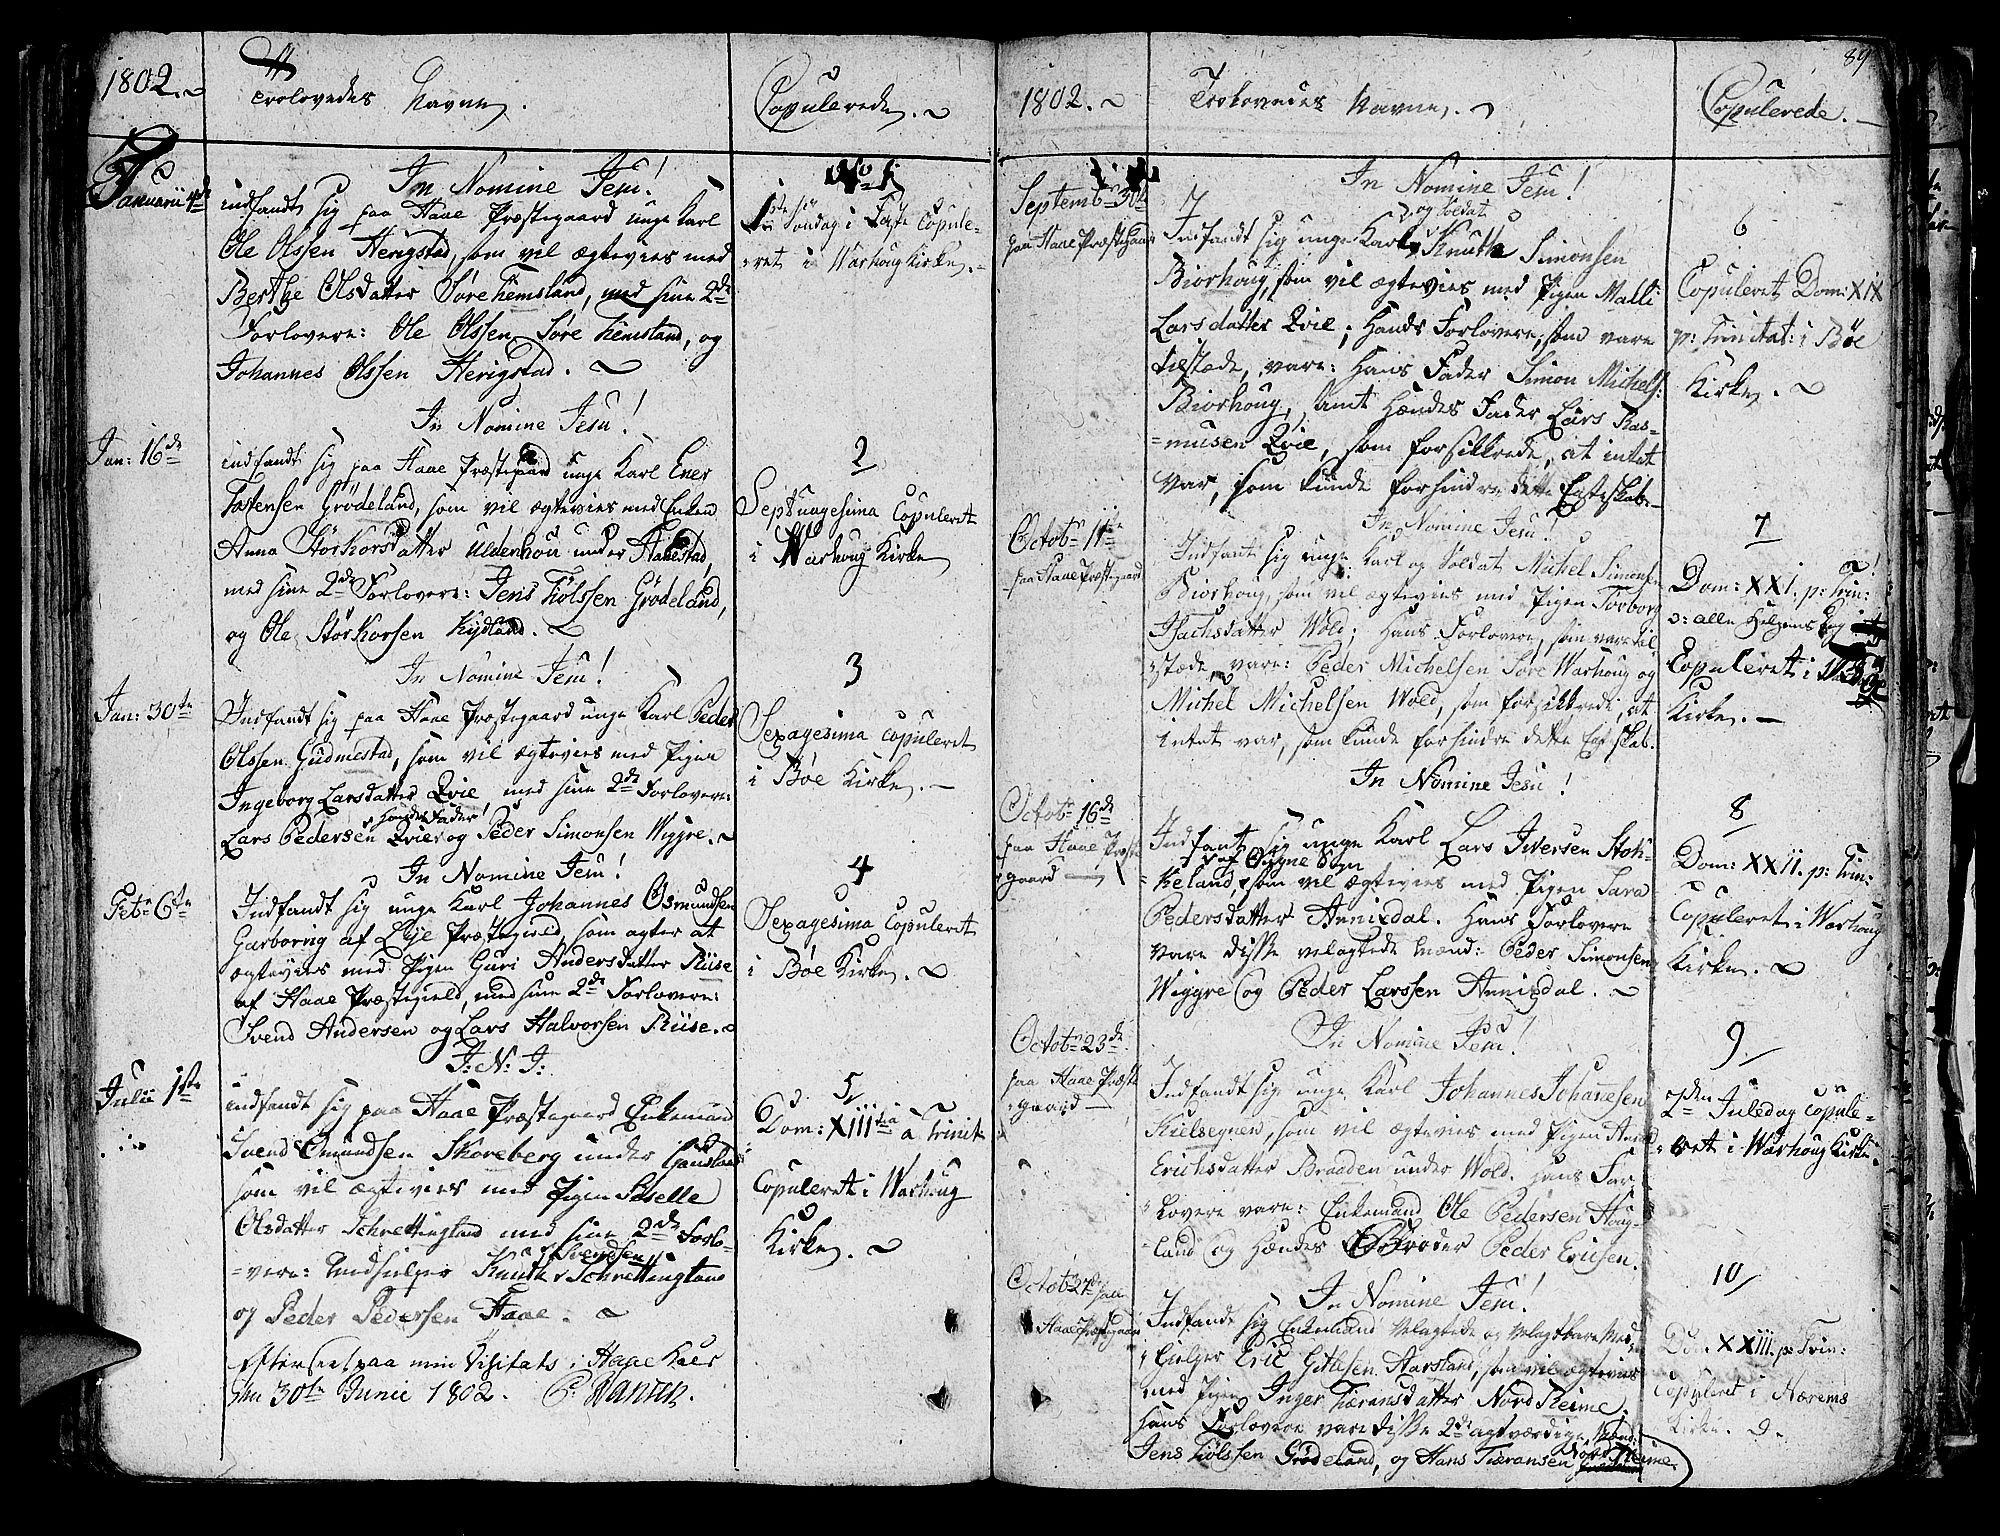 1802.
Trolovedes Navne.
Copulerede.
Januarii 4de
In Nomine Jesu!
indfandt sig paa Haae Præstegaard unge Karl
Ole Olssen Herigstad, som vil ægtevies med
Berthe Olsdatter Søre Hemsland, med sine 2de
Forlovere: Ole Olssen Søre Hemsland, og
Johannes Olssen Herigstad.
No 1
1ste Søndag i Faste Copule-
ret i Warhoug Kirke.
In Nomine Jesu!
Jan: 16de
indfandt sig paa Haae Præstegaard unge Karl Ener
Tostensen Grödeland, som vil ægtevies med Enken
Anna Störkorsdatter Uldenhou under Haaestad,
med sine 2de Forlovere: Jens Tiölssen Grödeland,
og Ole Störkorsen Kydland.
2
Septuagesima Copuleret
i Warhoug Kirke
In Nomine Jesu!
Jan: 30te
Indfandt sig paa Haae Præstegaard unge Karl Peder
Olssen Gudmestad, som vil ægtevies med Pigen
Ingeborg Larsdatter Qvie med sine 2de Forlovere:
Hendes Fader
Lars Pedersen Qvie og Peder Simonsen Wiggre.
3
Sexagesima copuleret
i Bøe Kirke.
In Nomine Jesu!
Feb: 6te
Indfandt sig unge Karl Johannes Osmundsen
Garborrig af Lye Præstegield, som agter at
ægtevies med Pigen Guri Andersdatter Riise
af Haae Præstegield, med sine 2de Forlovere:
Svend Andersen og Lars Halvorsen Riise.
4
Sexagesima Copuleret
i Bøe Kirke.
J: N: J:
Julii 1ste
indfandt sig paa Haae Præstegaard Enkemand
Svend Omundsen Skoreberg under
som vil ægtevies med Pigen Siselle
Olsdatter Schrettingland med sine 2de Forlo-
Svendsen
vere: Medhielper Knuth Schrettingland
og Peder Pedersen Haae.
5
Dom: XIII à Trinit
Copuleret i Warhoug
Kirke.
Efterseet paa min Visitats i Haae Kald
den 30te Junii 1802. P. Hansen.
89
1802.
Trolovedes Navne.
Copulerede.
In Nomine Jesu!
Septemb: 30te
paa Haae Præstegaard
og Soldat
Indfandt sig unge Karl Knuth Simonsen
Biorhoug, som vil ægtevies med Pigen Malli
Larsdatter Qvie; Hands Forlovere, som vare
tilstæde, vare: Hans Fader Simon Michels:
Biorhoug, samt Hændes Fader Lars Ras-
musen Qvie, som forsikkrede, at intet
var, som kunde forhindre dette Egteskab.
6
Copuleret Dom: XIX
p: Trinitat: i Bøe
Kirke.
In Nomine Jesu!
Octob: 11te
paa Haae Præstegaard
Indfant sig unge Karl og Soldat Michel Simonsen
Biorhoug, som vil ægtevies med Pigen Torborg
Isachsdatter Wold; Hans Forlovere, som vare til
stæde, vare: Peder Michelsen Søre Warhoug og
Michel Michelsen Wold, som forsikkrede, at
intet var, som kunde forhindre dette Egteskab.
7
Dom: XXI. p: Trin:
alle Helgens Dag
Copuleret i
Kirke.
In Nomine Jesu!
Octob: 16de
paa Haae Præste
gaard
Indfant sig unge Karl Lars Iversen Stoh-
af Ougne Sogn
keland, som vil ægtevies med Pigen Sara
Pedersdatter Anniqdal. Hans Forlovere
vare disse velagtede Mænd: Peder Simonsen
Wiggre og Peder Larssen Anniqdal.
8
Dom: XXII. p: Trin:
Copuleret i Warhoug
Kirke.
In Nomine Jesu!
Octob: 23de
paa Haae Præste
gaard
Indfandt sig unge Karl Johannes Johannesen
Kielsegnen, som vil ægtevies med Pigen Anna
Erichsdatter Braaden under Wold. Hans For-
lovere vare: Enkemand Ole Pedersen Houg-
land og Hændes Broder Peder Ericsen.
9.
2den Juledag copule-
ret i Warhoug Kirke.
In Nomine Jesu!
Octob: 27de paa
Haae Præstegaard
Indfandt sig Enkemand Velagtede og Velagtbare Med-
hielper Eric Gitlesen Aarsland, som vil ægtevies
med Pigen Inger Tieransdatter Nord Reime.
Hans Forlovere vare disse 2de agtværdige Mænd:
Jens Tiölssen Grödeland, og Hans Tieransen Nord Reime.
10
Dom XXIII. p: Trin:
Copuleret i Nærems
Kirke.